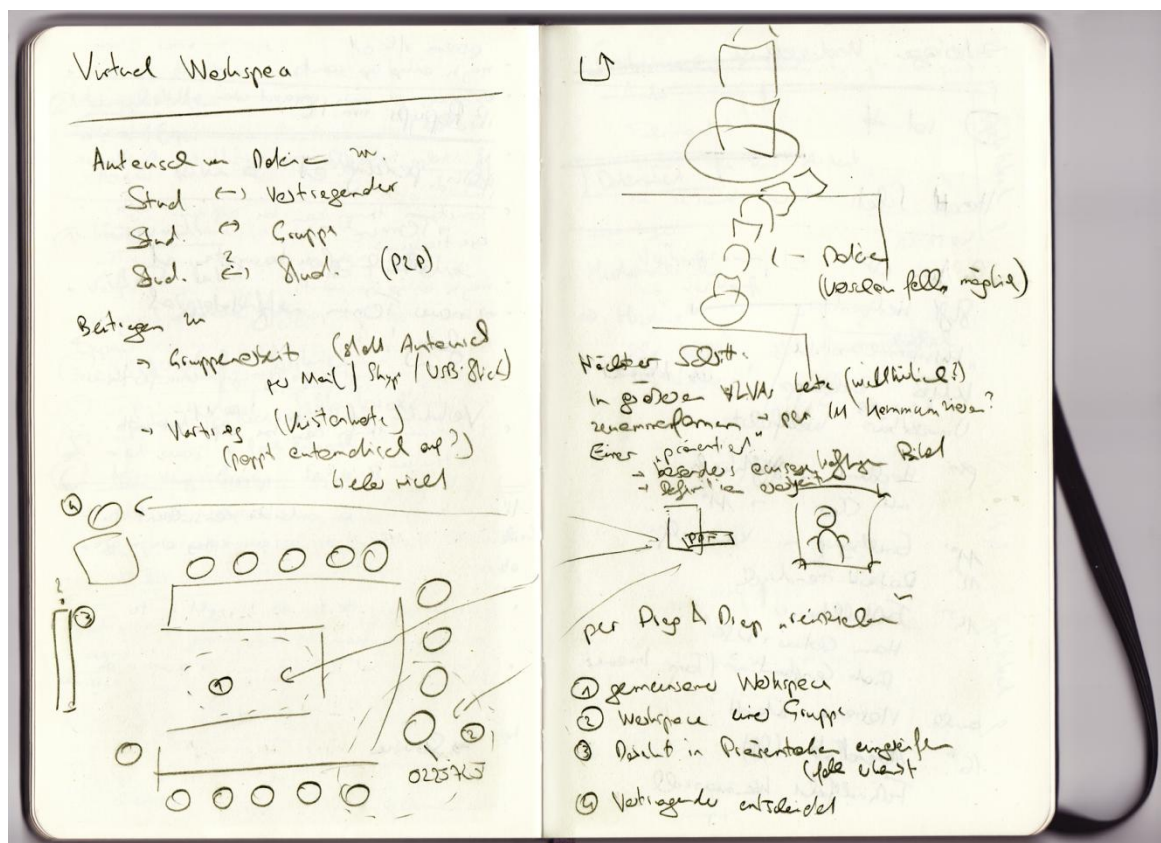 Virtual Workspace
Austausch von Dateien zw.
Stud ↔ Vortragender
Stud. ↔ Gruppe
Stud. ↔ Stud. (P2P)
?
Beitragen zu
→ Gruppenarbeit (statt Austausch
per Mail / Skype / USB-Stick)
→ Vortrag
(poppt automatisch auf?)
lieber nicht
4
?
3
1
2
0225765
Datei
(Versch falls möglich)
Nächster Schritt:
In größeren LVAs Leute (willkürlich?)
zusammenformen → per IM kommunizieren?
Einer „präsentiert“
→ besonders
→
Bild
PDF
per Drag & Drop
① gemeinsamer Workspace
② Workspace einer Gruppe
③ Direkt in Präsentation eingreifen
(falls erlaubt
④ Vortragender entscheidet